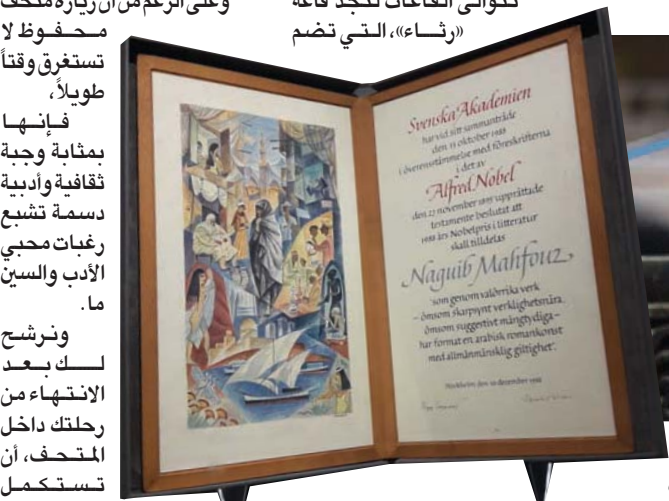 تتوالى القاعات لتجد قاعة
«رثــاء»، الـتـي تـضـم
وعلى الرغم من أن زيارة متحف
مـحـفـوظ لا
تستغرق وقتاً
طويلاً،
فـإنـهـا
بمثابة وجبة
ثقافية وأدبية
دسمة تشبع
رغبات محبي
الأدب والسين
ما.
ونـرشـح
لــك بـعـد
الانتهاء من
رحلتك داخل
المتحف، أن
تـسـتـكـمـل
Svenska Akademien
har vid sitt sammanträde
den 13 oktober 1988
i överensstämmelse med föreskrifterna
i det av
Alfred Nobel
den 27 november 1895 upprättade
testamente beslutat att
1988 års Nobelpris i litteratur
skall tilldelas
Naguib Mahfouz
"som genom valörrika verk
– ömsom skarpsynt verklighetsnära,
ömsom suggestivt mångtydiga –
har format en arabisk romankonst
med allmänmänsklig giltighet".
Stockholm den 10 december 1988